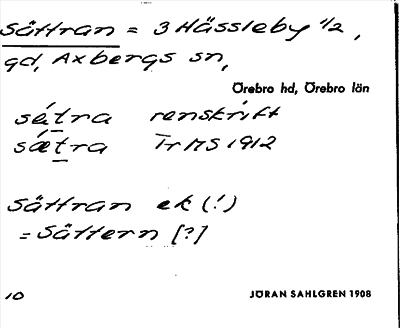 Sättran = 3 Hässleby 1/2,
gd, Axbergs sn,
Örebro hd, Örebro län
sétra renskrift
sætra Tr MS 1912
Sättran ek (!)
= Sättern [?]
10
JÖRAN SAHLGREN 1908